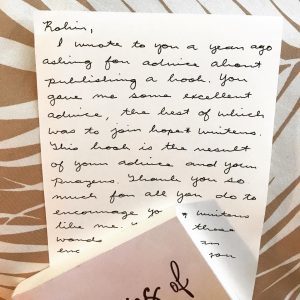 Robin,
I wrote to you a year ago
asking for advice about
publishing a book. You
gave me some excellent
advice, the best of which
was to join hope*writers.
This book is the result
of your advice and your
prayers. Thank you so
much for all you do to
encourage yo writers
like me. these
words am
enc you
of